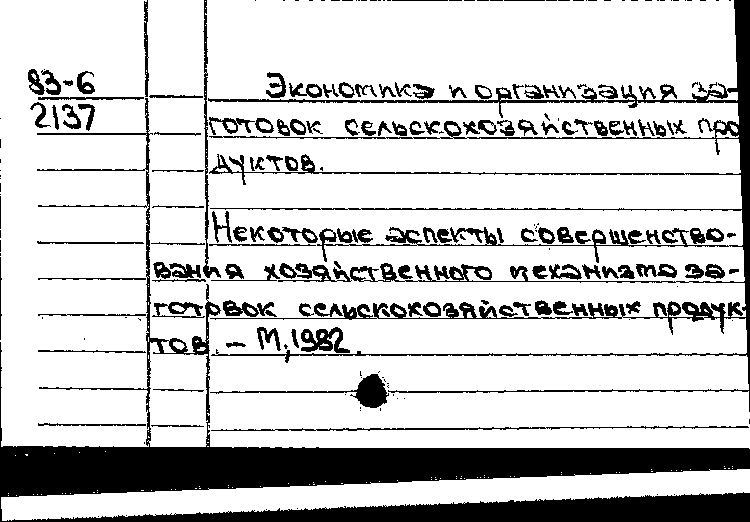 83-6
2137
Экономика и организация за-
готовок сельскохозяйственных про
дуктов.
Некоторые аспекты совершенство-
вания хозяйственного механизма за-
готовок сельскохозяйственных продук-
тов. – М., 1982.